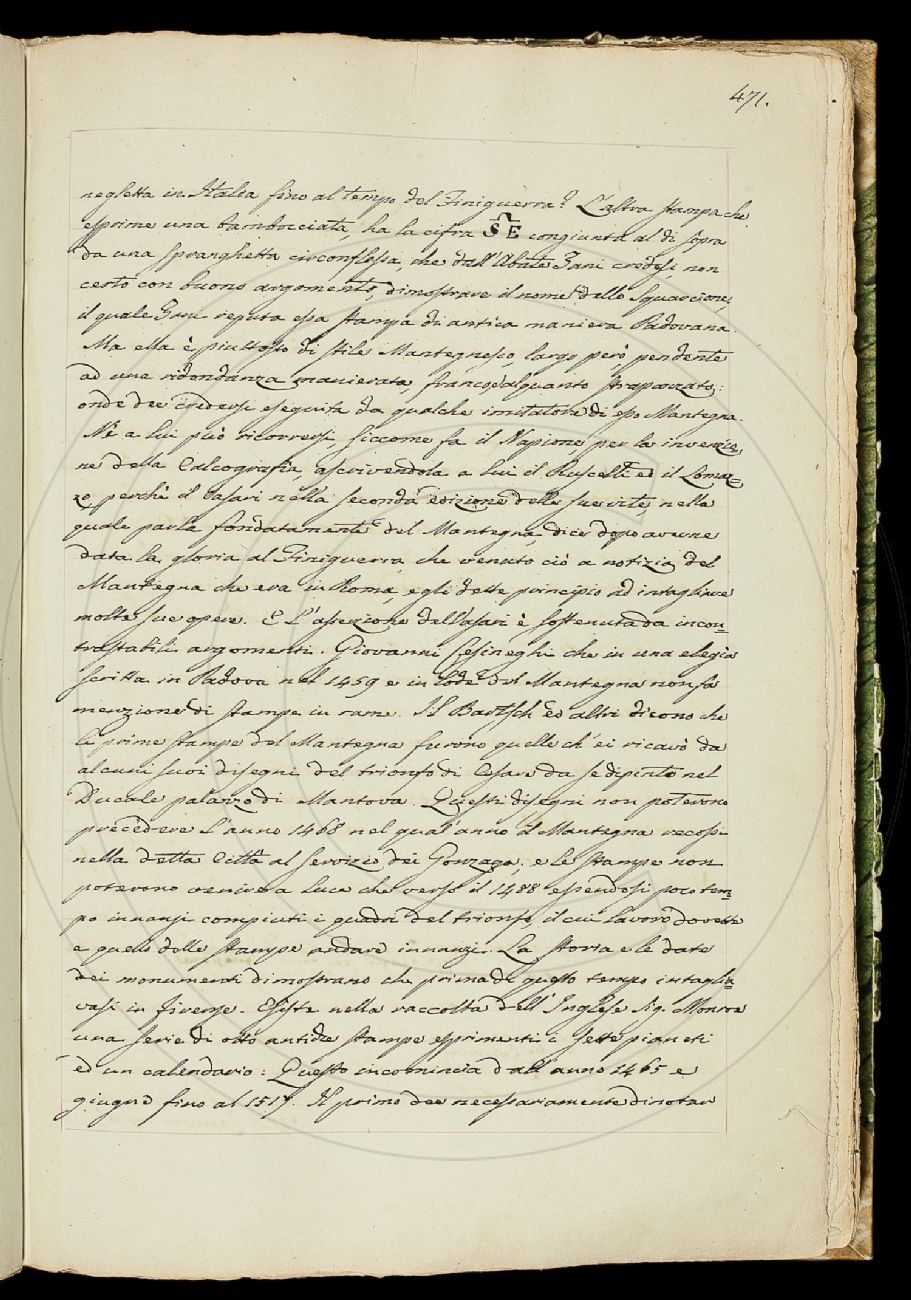 471.
neglletta in Italia fino al tempo del Finiguerra? L'altra stampa che
esprime una bambocciata, ha la cifra S E congiunta al di sopra
da una spranghetta circonflessa, che dall'Abate Zani credesi, non
certo con buono argomento, dimostrare il nome dello Squarcione,
il quale Zani reputa essa stampa di antica maniera Padovana.
Ma ella è piuttosto di stile Mantegnesco, largo però, pendente
ad una ridondanza manierata, franco, e alquanto strapazzato:
onde dee credersi eseguita da qualche imitatore di esso Mantegna.
Nè a lui può ricorrersi, siccome fa il Napione, per la invenzio=
ne della Calcografia, ascrivendola a lui il Ruscelli ed il Lomaz=
zo, perchè il Vasari nella seconda edizione delle sue vite nella
quale parla fondatamente del Mantegna, dice dopo averne
data la gloria al Finiguerra, che venuto ciò a notizia del
Mantegna che era in Roma, egli dette principio ad intagliare
molte sue opere. E l'asserzione del Vasari è sostenuta da incon=
trastabili argomenti. Giovanni che in una elegia
scritta in Padova nel 1459 e in lode del Mantegna non fa
menzione di stampe in rame. Il Bartsch ed altri dicono che
le prime stampe del Mantegna furono quelle ch'ei ricavò da
alcuni suoi disegni del trionfo di Cesare da se dipinto nel
Ducale palazzo di Mantova. Questi disegni non poterono
precedere l'anno 1468 nel qual'anno il Mantegna recossi
nella detta Città al servizio dei Gonzaga, e le stampe non
poterono venire a luce che verso il 1488 essendosi poco tem=
po innanzi compiuti i quadri del trionfo, il cui lavoro dovette
a quello delle stampe andare innanzi. La storia e le date
dei monumenti dimostrano che prima di questo tempo intaglia=
vasi in firenze. Esiste nella raccolta dell'Inglese Sig. Monroe
una serie di otto antiche stampe esprimenti i sette pianeti
ed un calendario: Questo incomincia dall'anno 1465 e
giugne fino al 1517. Il primo dee necessariamente dinotar